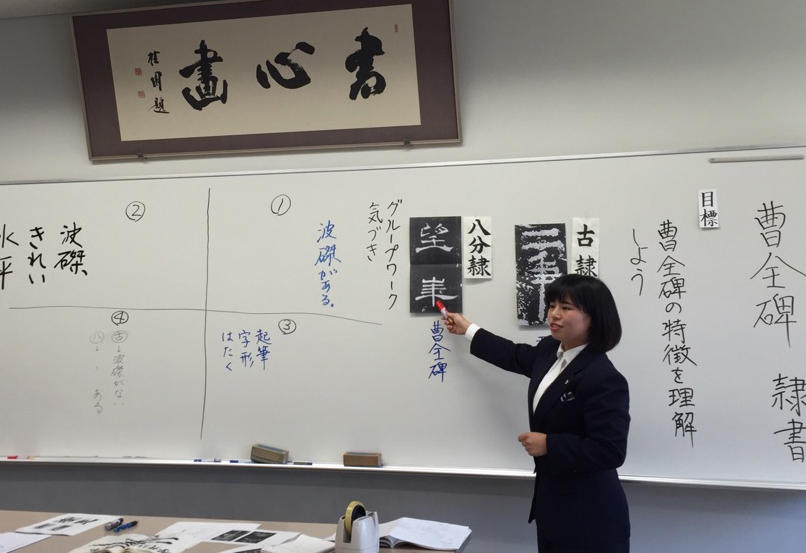 書心畫
曹全碑 隷書
目標
曹全碑の特徴を理解
しよう
古隷
八分隷
望
曹全碑
グループワーク
気づき
①
波磔がある。
②
波磔、
きれい
水平
③
起筆
字形
はたく
④
古 波磔がない
八 ある